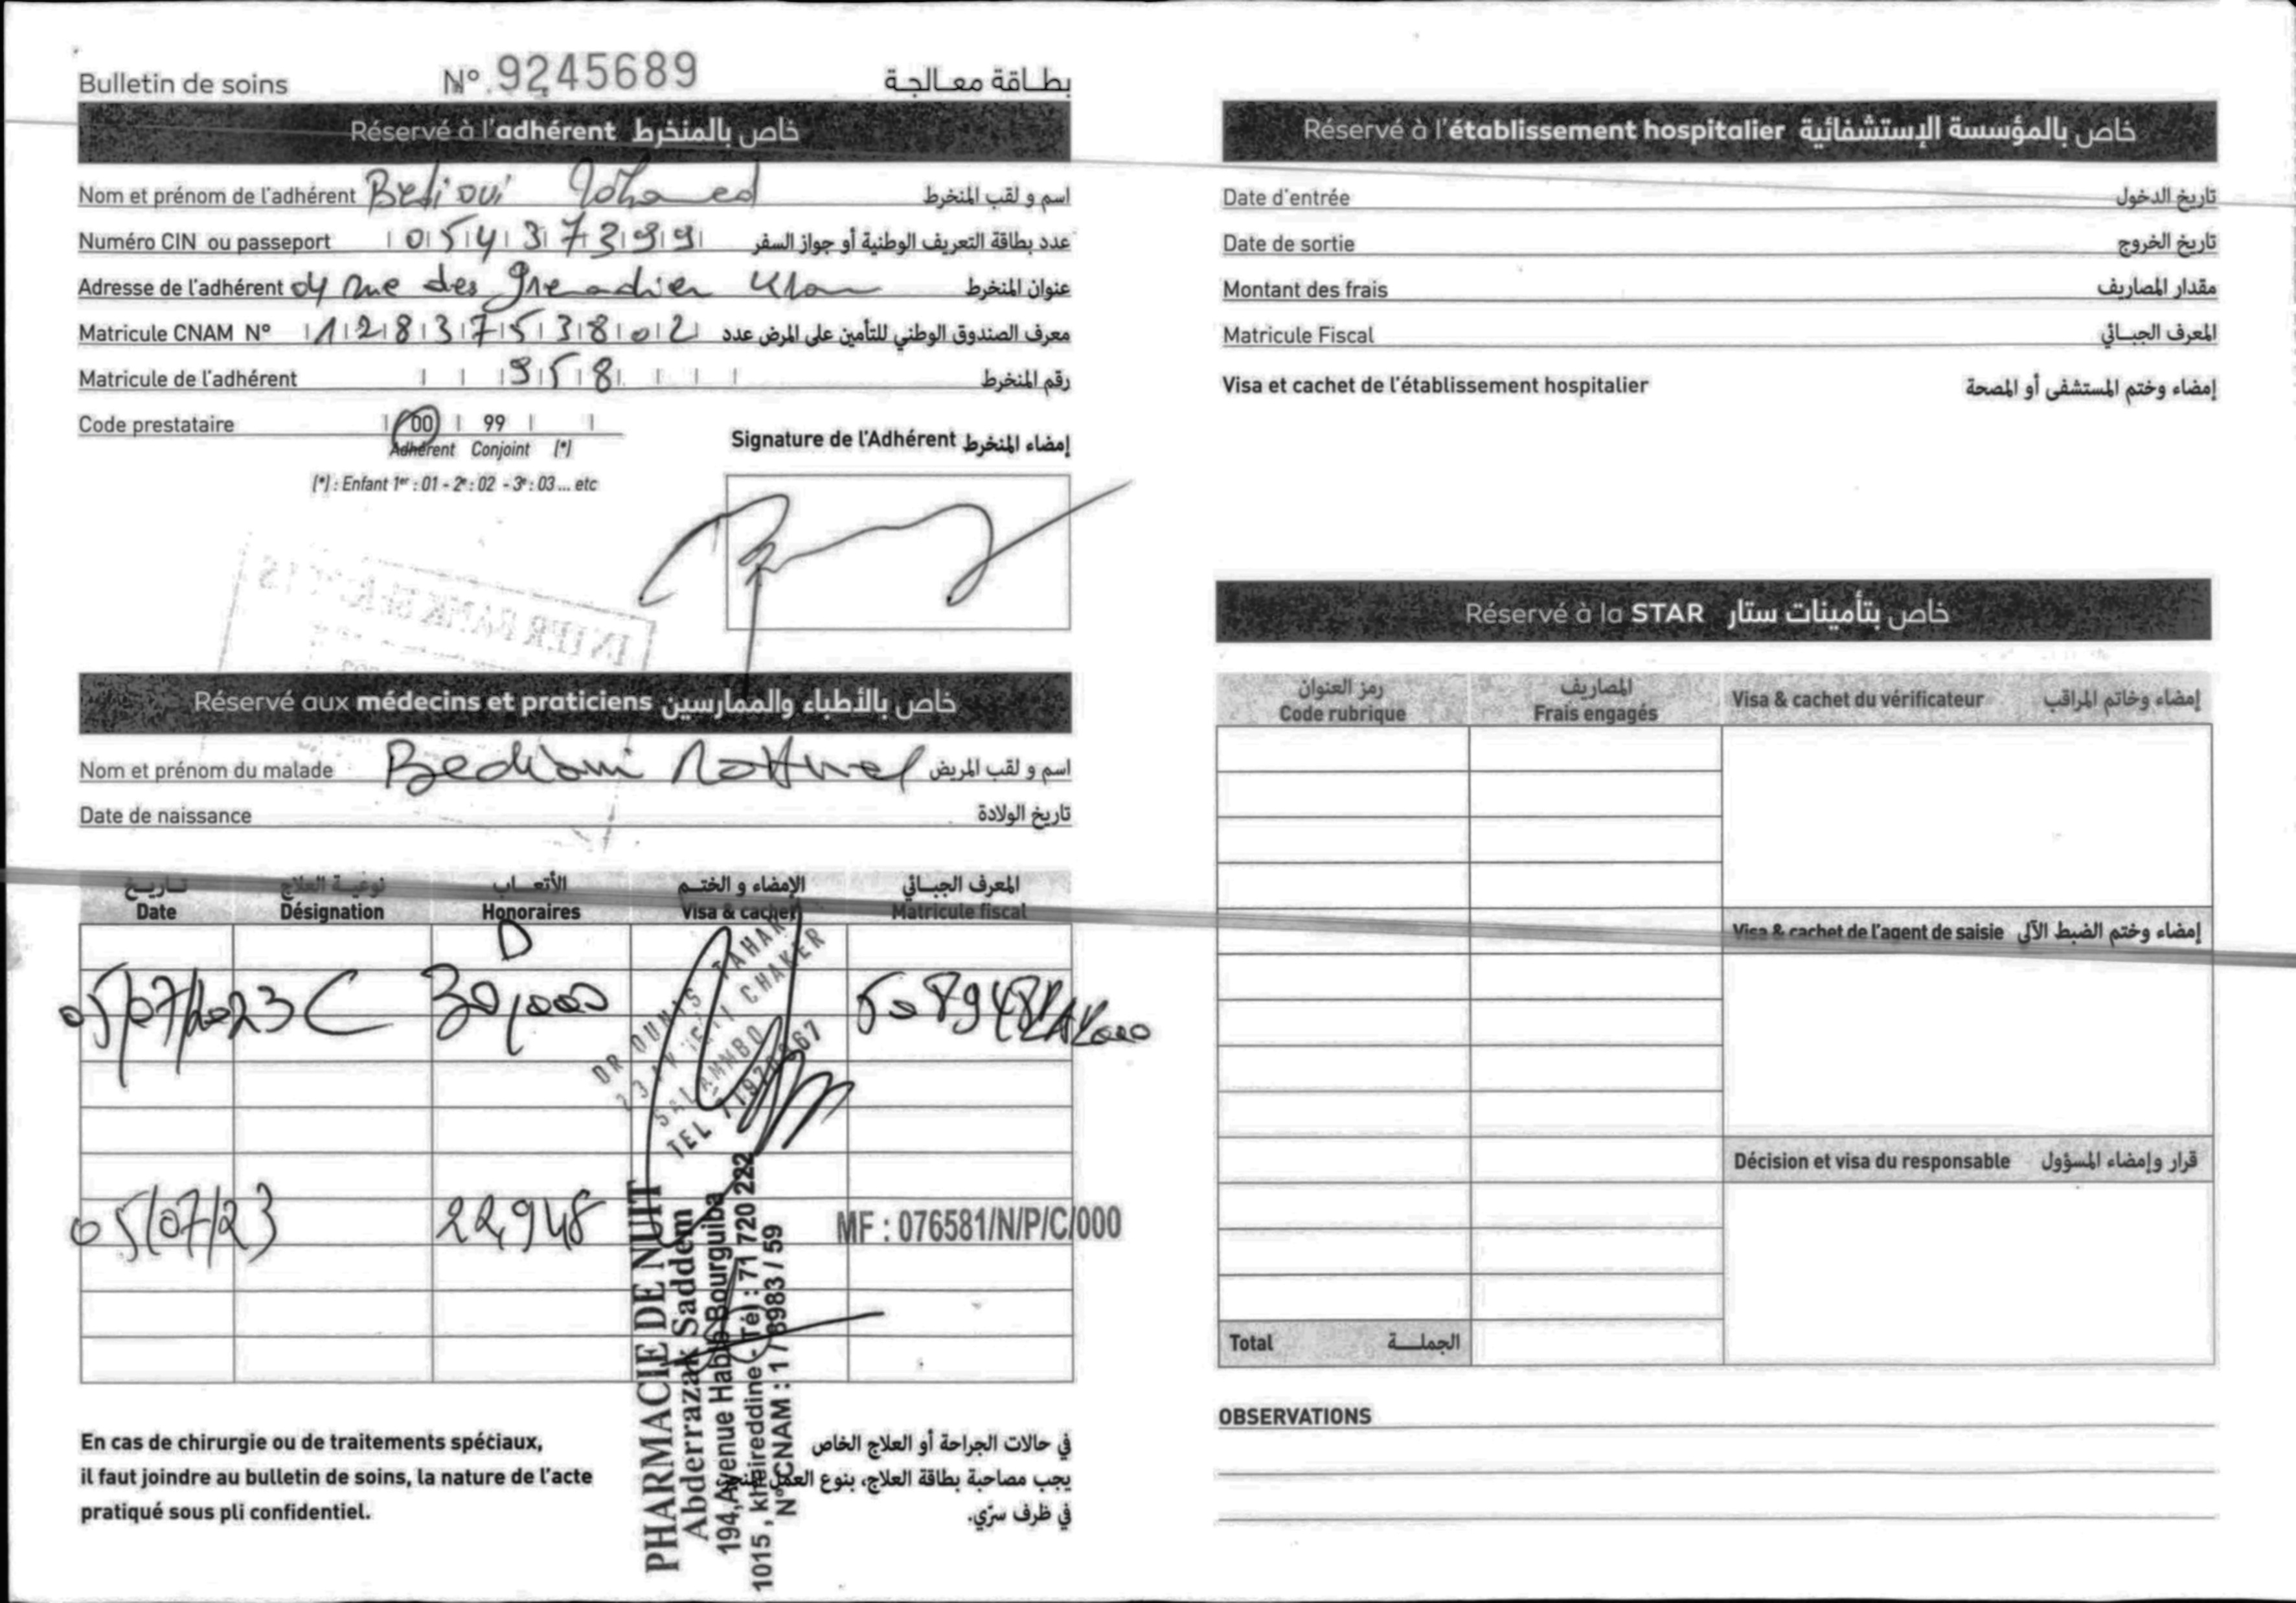 Bulletin de soins N°. 9245689 بطاقة معالجة
Réservé à l'adhérent خاص بالمنخرط
Nom et prénom de l'adhérent Bedioui Mohamed اسم و لقب المنخرط
Numéro CIN ou passeport 05437399 عدد بطاقة التعريف الوطنية أو جواز السفر
Adresse de l'adhérent 04 rue des Grenadier عنوان المنخرط
Matricule CNAM N° 128375380 2 معرف الصندوق الوطني للتأمين على المرض عدد
Matricule de l'adhérent 958 رقم المنخرط
Code prestataire 00 99
Adhérent Conjoint (*)
(*) : Enfant 1er : 01 - 2e : 02 - 3e : 03 ... etc
Signature de l'Adhérent إمضاء المنخرط
INTER BANK
Réservé aux médecins et praticiens خاص بالأطباء والممارسين
Nom et prénom du malade Bedioui اسم و لقب المريض
Date de naissance تاريخ الولادة
تاريخ نوعية العلاج الأتعاب الإمضاء و الختم المعرف الجبائي
Date Désignation Honoraires Visa & cachet Matricule fiscal
D
05/07/2023 C 30,000
DR OUNIS TAHAR
CHAKER
SALAMMBO
TEL
05/07/23 22,948 MF : 076581/N/P/C/000
PHARMACIE DE NUIT
Abderrazak Saddem
194, Avenue Habib Bourguiba
1015 , kheireddine - Tél : 71 720 222
N° CNAM : 1 / 8983 / 59
En cas de chirurgie ou de traitements spéciaux,
il faut joindre au bulletin de soins, la nature de l'acte
pratiqué sous pli confidentiel.
في حالات الجراحة أو العلاج الخاص
يجب مصاحبة بطاقة العلاج، بنوع العمل
في ظرف سرّي.
Réservé à l'établissement hospitalier خاص بالمؤسسة الإستشفائية
Date d'entrée تاريخ الدخول
Date de sortie تاريخ الخروج
Montant des frais مقدار المصاريف
Matricule Fiscal المعرف الجبائي
Visa et cachet de l'établissement hospitalier إمضاء وختم المستشفى أو المصحة
Réservé à la STAR خاص بتأمينات ستار
رمز العنوان المصاريف
Code rubrique Frais engagés
Visa & cachet du vérificateur إمضاء وخاتم المراقب
Visa & cachet de l'agent de saisie إمضاء وختم الضبط الآلي
Décision et visa du responsable قرار وإمضاء المسؤول
Total الجملة
OBSERVATIONS